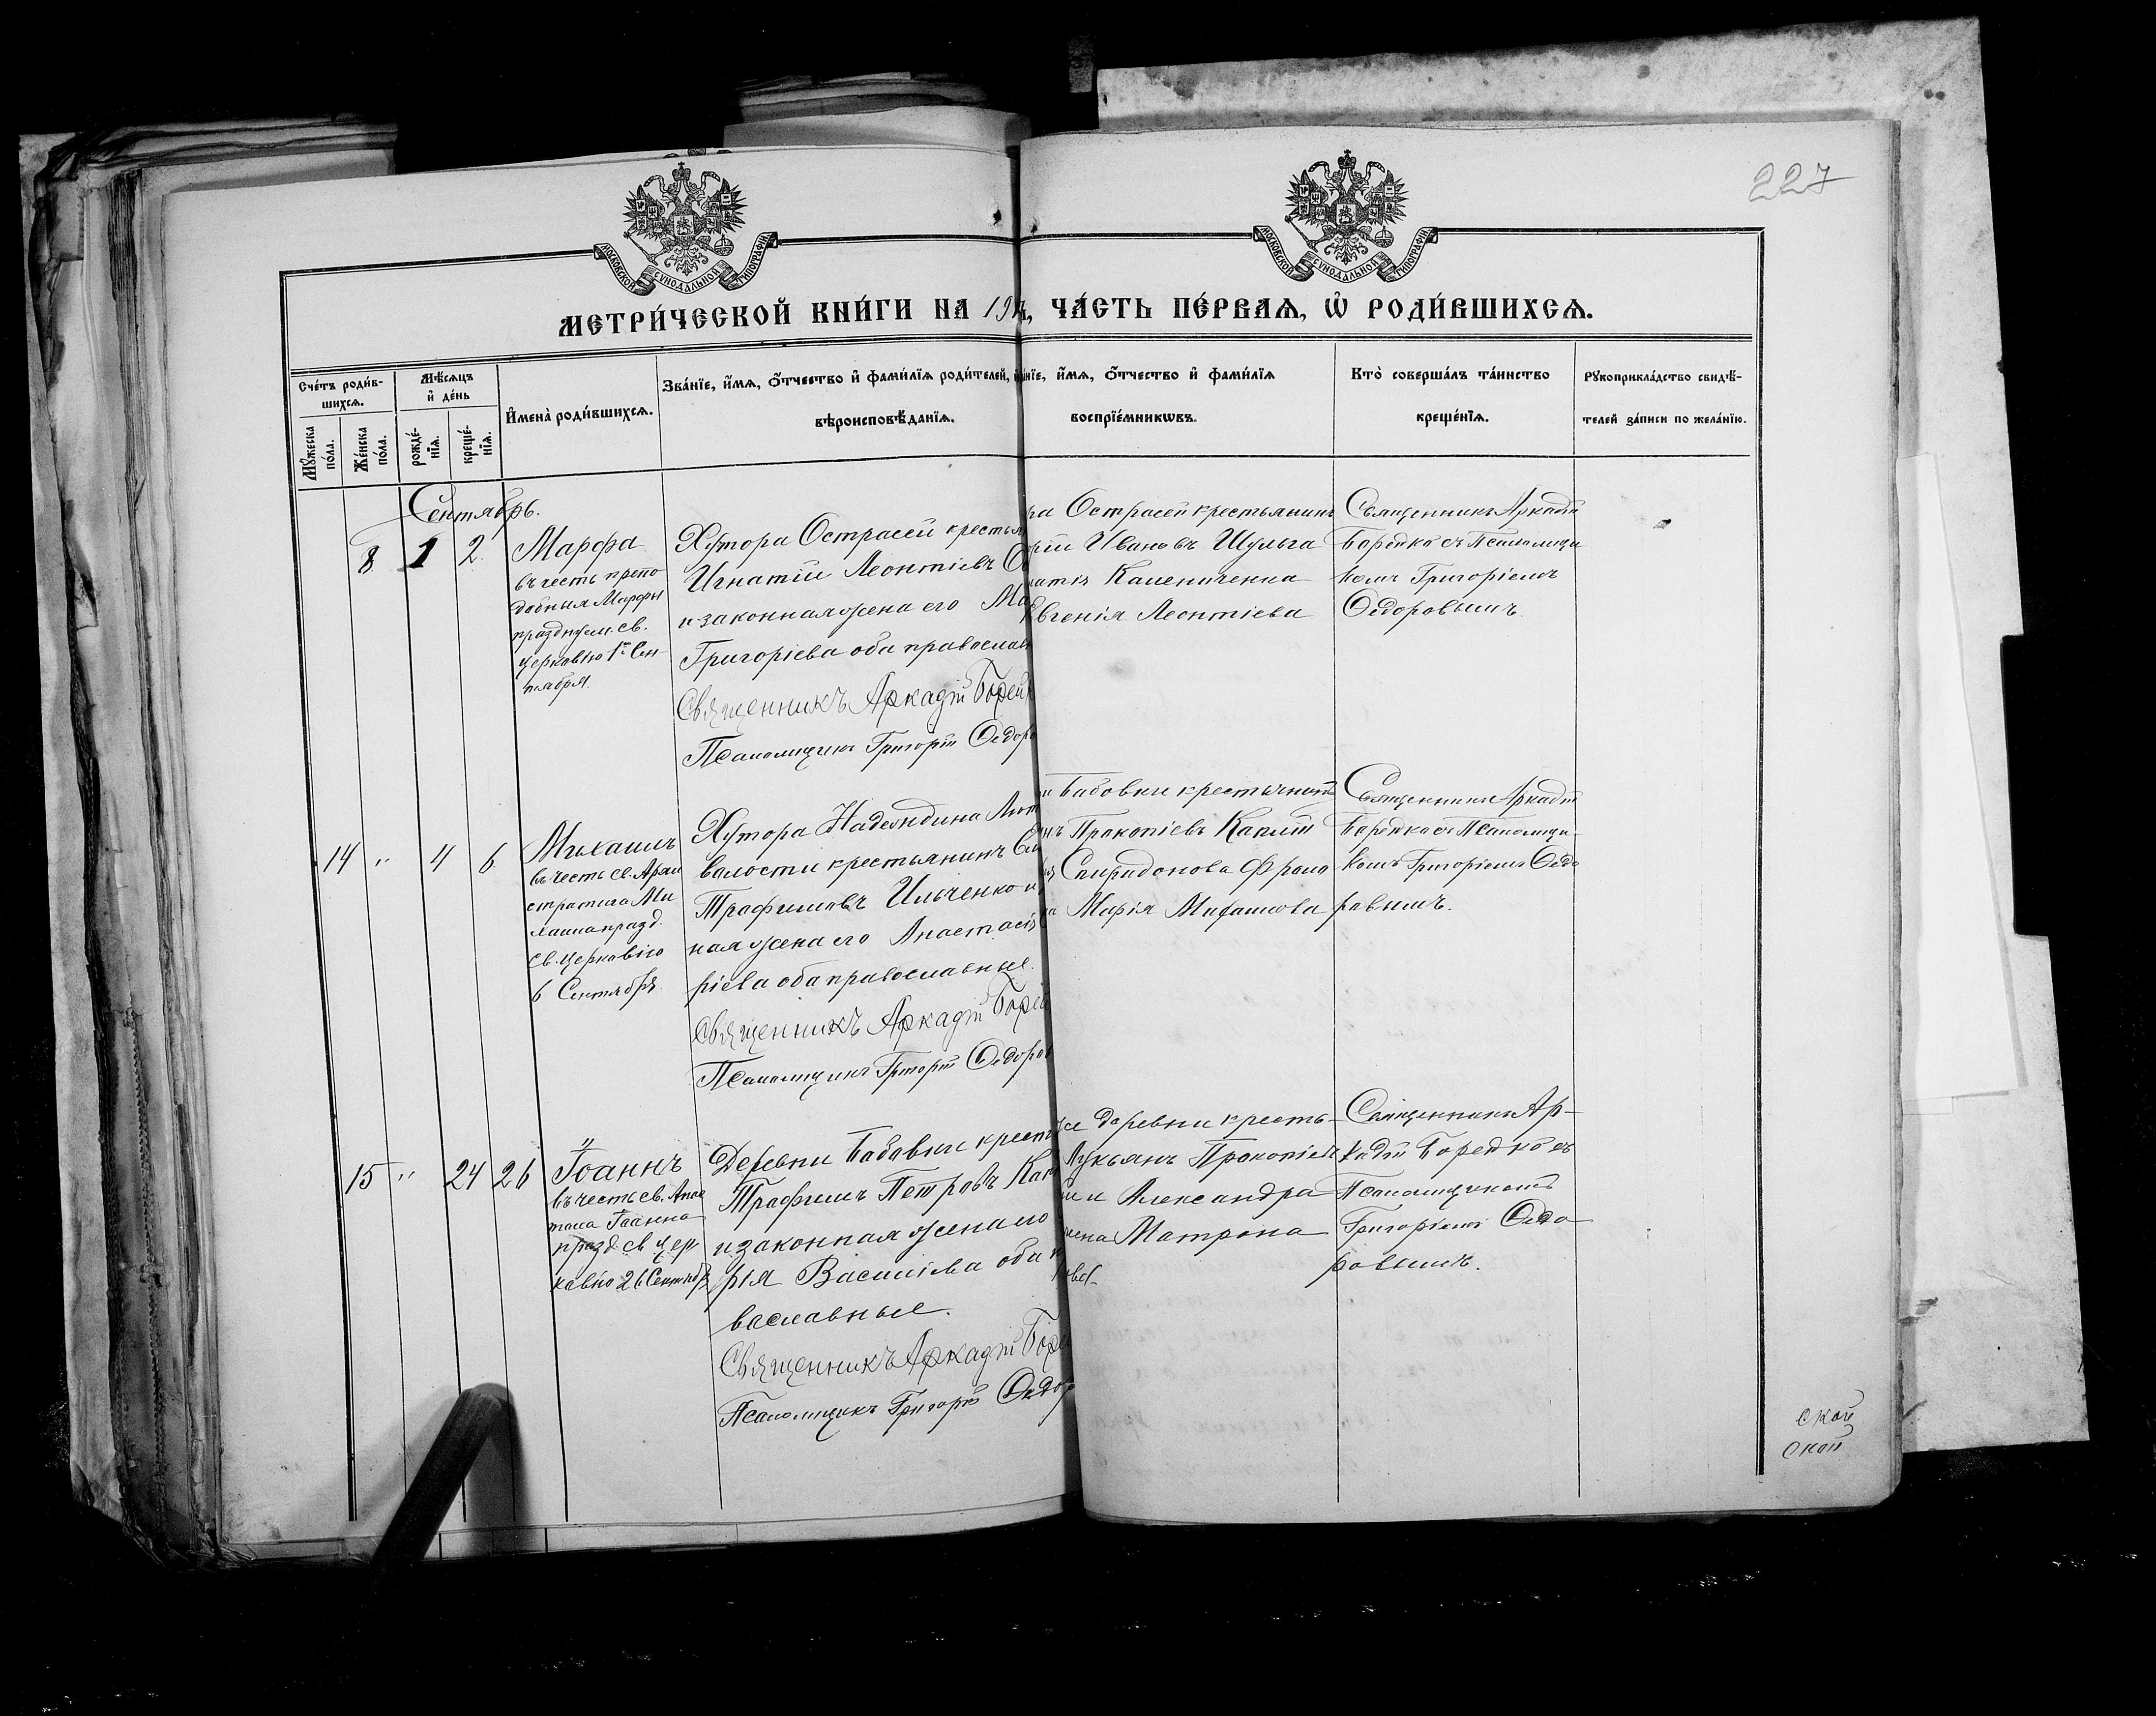 227
МОСКОВСКОЙ СѴНОДАЛЬНОЙ ТИПОГРАФІИ
МОСКОВСКОЙ СѴНОДАЛЬНОЙ ТИПОГРАФІИ
МЕТРИ́ЧЕСКОЙ КНИ́ГИ НА 191
ЧА́СТЬ ПЕ́РВАѦ, Ѡ҆ РОДИ́ВШИХСѦ.
Сче́тъ роди́в-
шихсѧ.
Мꙋ́жеска по́ла.
Же́нска по́ла.
Мѣ́сѧцъ
и҆ де́нь
рожде́-
нїѧ.
креще́-
нїѧ.
И҆мена̀ роди́вшихсѧ.
Зва́нїе, и҆́мѧ, ѻ҆́тчество и҆ фами́лїѧ роди́телей, и҆
вѣроисповѣ́данїѧ.
нїе, и҆́мѧ, ѻ҆́тчество и҆ фами́лїѧ
воспрїе́мникѡвъ.
Кто̀ соверша́лъ та́инство
креще́нїѧ.
Рꙋкоприкла́дство свидѣ́-
телей за́писи по жела́нїю.
Сентябрь.
8 1 2
Марфа
въ честь препо
добныя Марфы
праздн
церковію 1го Сен-
тября.
Хутора Острасей крестья
Игнатій Леонтіевъ
и законная жена его Ма
Григоріева оба православ
Священникъ Аркадій Борей
Псаломщикъ Григорій Ѳедоро
ра Острасей крестьянинъ
рій Ивановъ Шульга
Каленченка
Евгенія Леонтіева
Священникъ Аркадій
Борейко съ Псаломщи
комъ Григоріемъ
Ѳедоровымъ.
14 " 4 6
Михаилъ
въ честь св. Архи
стратига Ми
хаила празд.
св. церковію
6 Сентября.
Хутора Надеждина
волости крестьянинъ
Трофимовъ Ильченко и
ная жена его Анастасія
ріева оба православные.
Священникъ Аркадій Борей
Псаломщикъ Григорій Ѳедоров
Бабовки крестьянинъ
Прокопіевъ Капшт
Спиридонова
Марія Михаилова
Священникъ Аркадій
Борейко съ Псаломщи-
комъ Григоріемъ Ѳедо
ровымъ.
15 " 24 26
Іоаннъ
въ честь св. Апос
тола Іоанна
празд. св. цер
ковію 26 Сентября
Деревни Бабовки крест
Трофимъ Петровъ Кап
и законная жена его
рія Василіева оба п
вославные.
Священникъ Аркадій Борей
Псаломщикъ Григорій Ѳедор
же деревни кресть-
Лукьянъ Прокопіевъ
и Александра
жена Матрона
ова.
Священникъ Ар-
кадій Борейко съ
Псаломщикомъ
Григоріемъ Ѳедо
ровымъ.
ской
ской